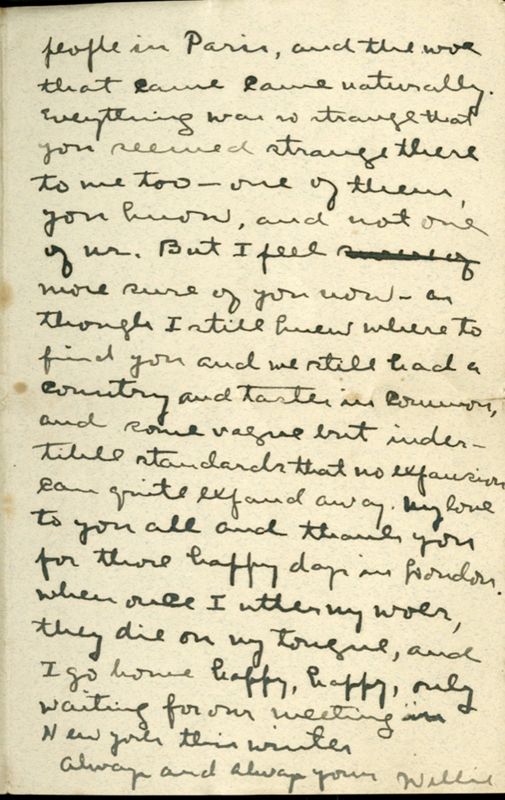 people in Paris, and the woe
that came came naturally.
Everything was so strange that
you seemed strange there
to me too — one of them,
you know, and not one
of us. But I feel
more sure of you now — as
though I still knew where to
find you and we still had a
country and tastes in common,
and some vague but inder-
tible standards that no expansion
can quite expand away. My love
to you all and thank you
for those happy days in London.
When once I utter my woes,
they die on my tongue, and
I go home happy, happy, only
waiting for our meeting in
New York this winter
Always and always yours Willie